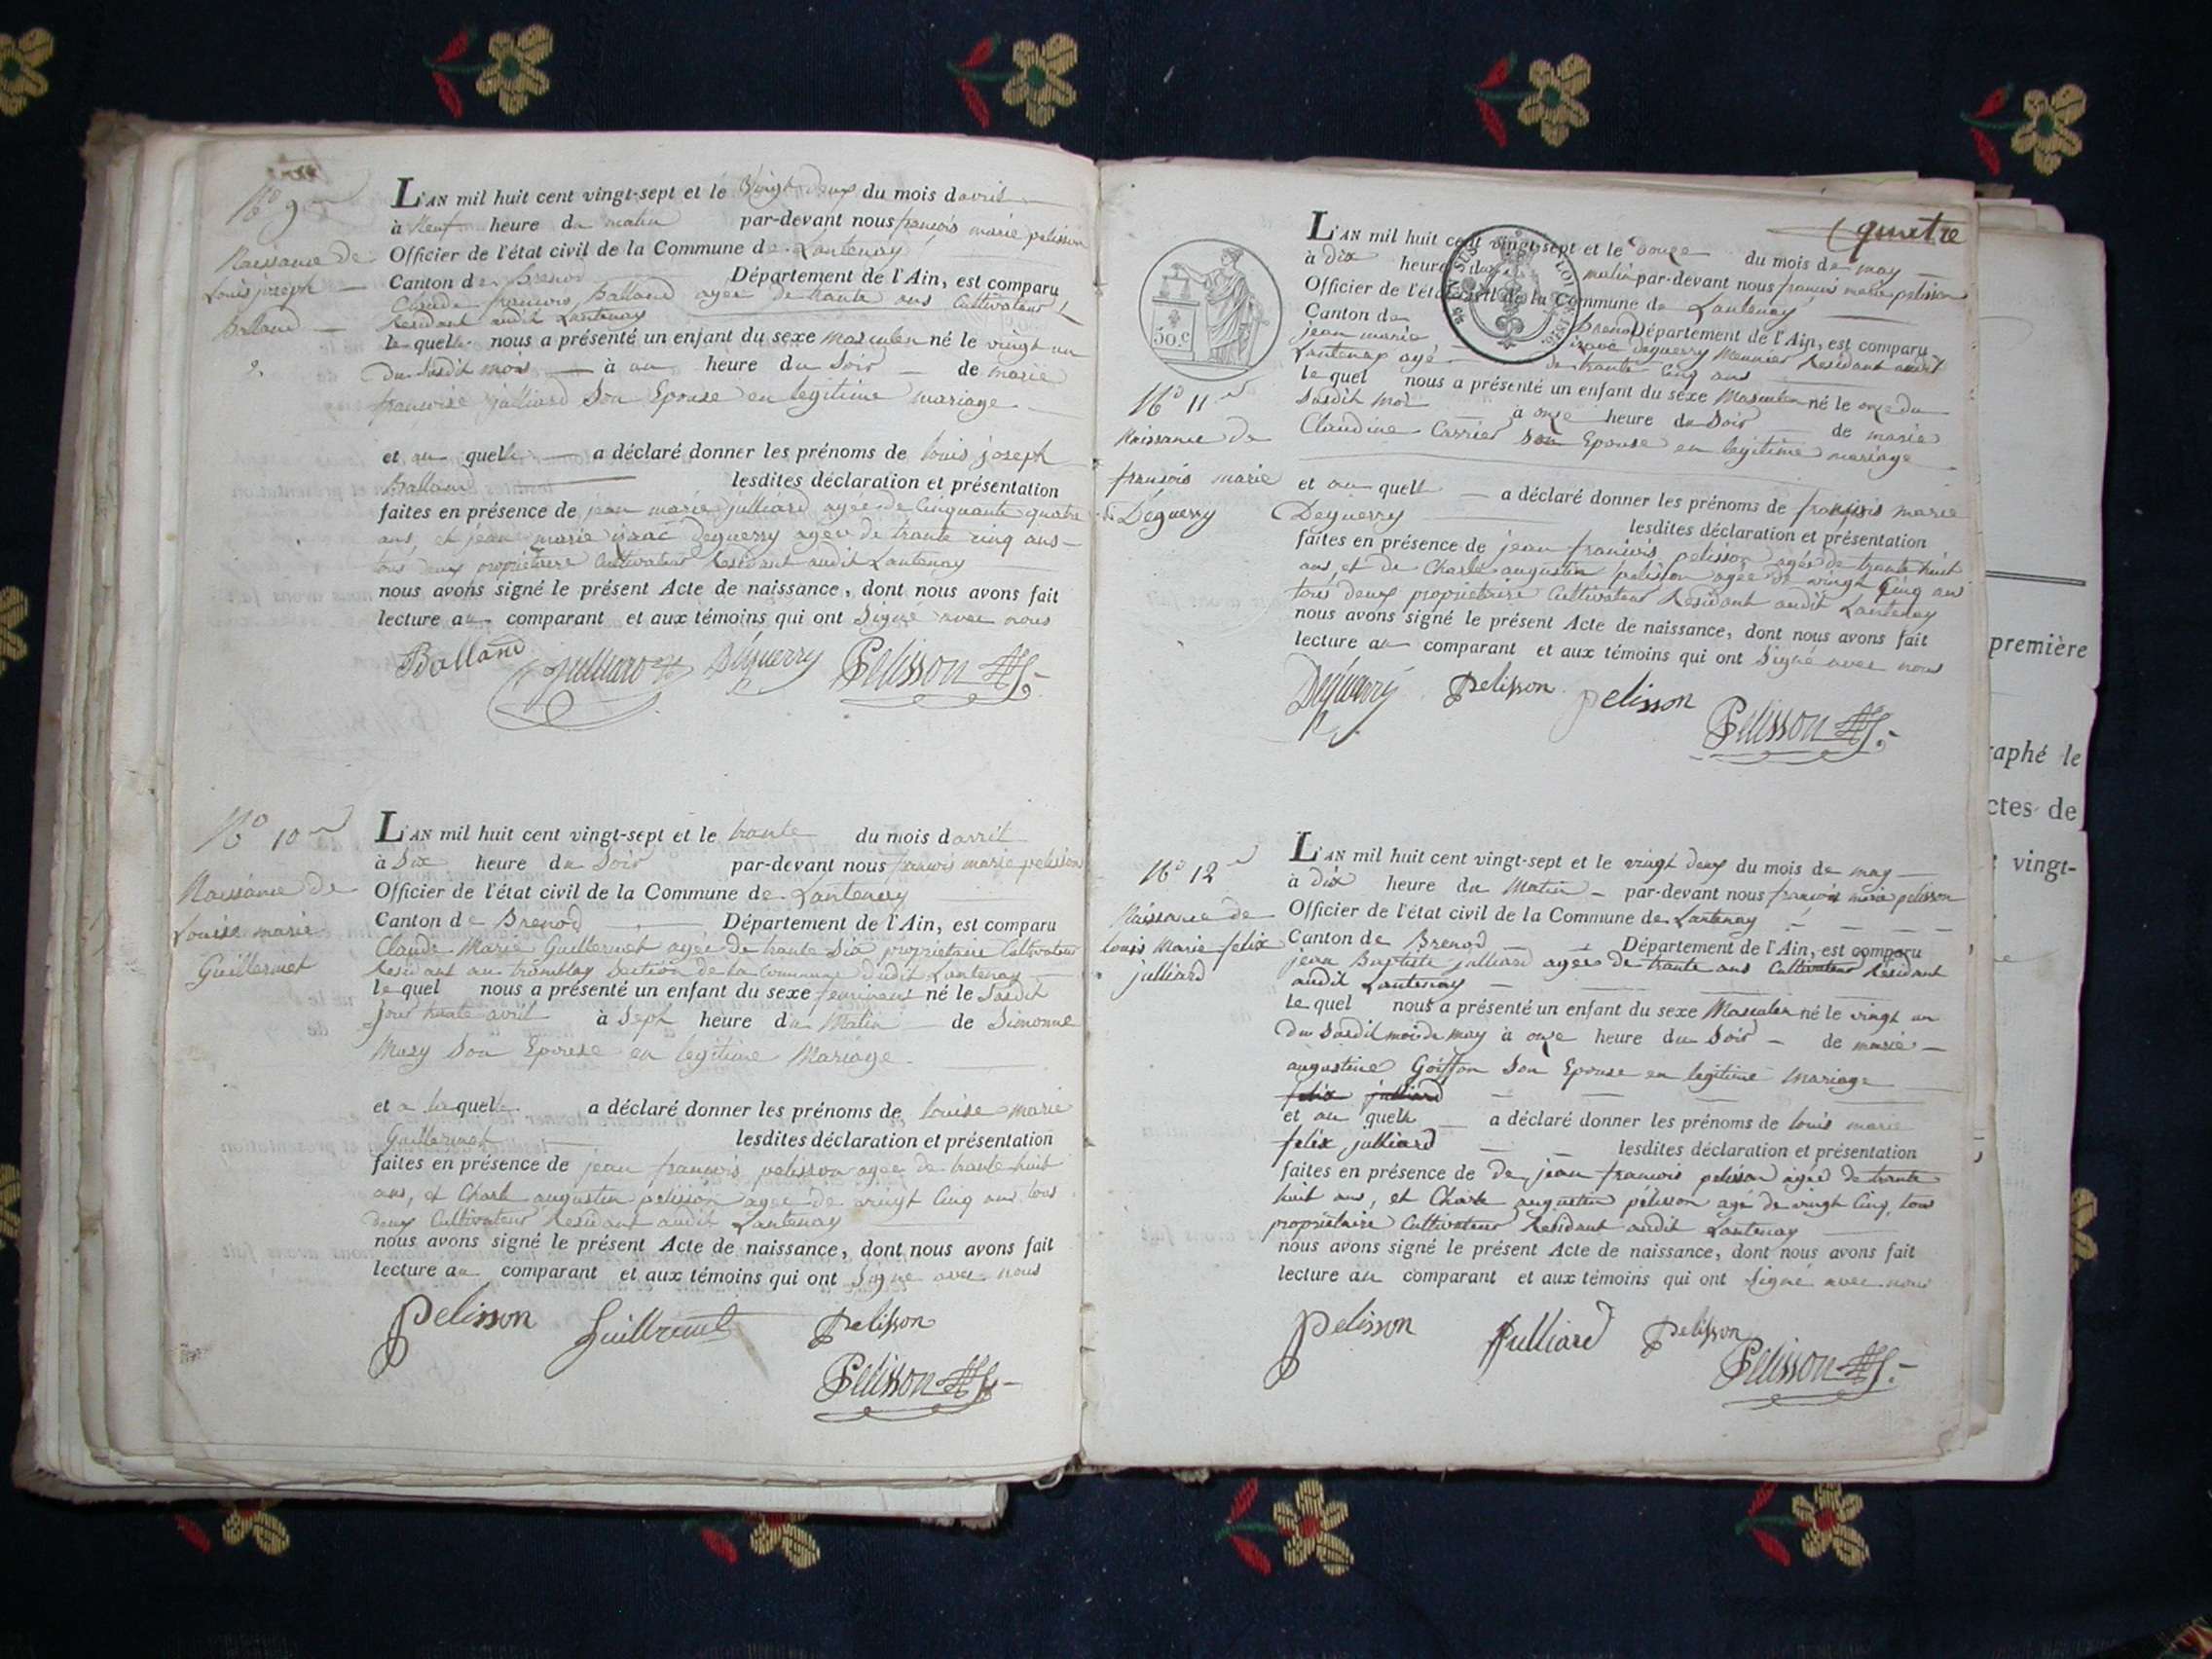 N.o 9
Naissance de
Louis joseph
Balland
2.
L'AN mil huit cent vingt-sept et le Vingt deux du mois d'avril
à Neuf heure du matin par-devant nous françois marie pelisson
Officier de l'état civil de la Commune de Lantenay
Canton de Brenod Département de l'Ain, est comparu
Claude françois Balland agée de trante ans Cultivateur
Residant audit Lantenay
le quel nous a présenté un enfant du sexe Masculin né le vingt un
du susdit mois à un heure du Soir de marie
françoise julliard Son Epouse en legitime mariage
et au quelle a déclaré donner les prénoms de louis joseph
Balland lesdites déclaration et présentation
faites en présence de jean marie julliard agée de Cinquante quatre
ans, et jean marie isaac Deguerry agée de trante cinq ans
tous deux propriétaire Cultivateur Residant audit Lantenay
nous avons signé le présent Acte de naissance, dont nous avons fait
lecture au comparant et aux témoins qui ont Signé avec nous
Balland julliard Déguerry Pelisson
N.o 10
Naissance de
Louise marie
Guillermet
L'AN mil huit cent vingt-sept et le trante du mois d'avril
à Six heure du Soir par-devant nous francois marie pelisson
Officier de l'état civil de la Commune de Lantenay
Canton de Brenod Département de l'Ain, est comparu
Claude Marie Guillermet agée de trante Six propriétaire Cultivateur
Residant au tromblay Section de la Commune dudit Lantenay
le quel nous a présenté un enfant du sexe feminins né le Susdit
jour trante avril à Sept heure du Matin de Simonne
Mury Son Epouse en legitime Mariage
et a laquelle a déclaré donner les prénoms de louise marie
Guillermet lesdites déclaration et présentation
faites en présence de jean francois pelisson agée de trante huit
ans, et Charle augustin pelisson agée de vingt Cinq ans tous
deux Cultivateur Residant audit Lantenay
nous avons signé le présent Acte de naissance, dont nous avons fait
lecture au comparant et aux témoins qui ont Signé avec nous
Pelisson Guillermet Pelisson
Pelisson
quatre
50.c
N.o 11
Naissance de
françois marie
Déguerry
L'AN mil huit cent vingt-sept et le douze du mois de may
à dix heure du matin par-devant nous françois marie pelisson
Officier de l'état civil de la Commune de Lantenay
Canton de Brenod Département de l'Ain, est comparu
jean marie isaac Deguerry Meunier Residant audit
Lantenay agé de trante Cinq ans
le quel nous a présenté un enfant du sexe Masculin né le onze du
Susdit moi à onze heure du Soir de marie
Claudine Carrier Son Epouse en legitime mariage
et au quell a déclaré donner les prénoms de françois marie
Deguerry lesdites déclaration et présentation
faites en présence de jean francois pelisson agés de trante huit
ans, et de Charle augustin pelisson agée de vingt Cinq ans
tous deux propriétaire Cultivateur Residant audit Lantenay
nous avons signé le présent Acte de naissance, dont nous avons fait
lecture au comparant et aux témoins qui ont Signé avec nous
Déguerry Pelisson pelisson
Pelisson
N.o 12
Naissance de
louis Marie felix
julliard
L'AN mil huit cent vingt-sept et le vingt deux du mois de may
à dix heure du Matin par-devant nous françois marie pelisson
Officier de l'état civil de la Commune de Lantenay
Canton de Brenod Département de l'Ain, est comparu
jean Baptiste julliard agée de trante ans Cultivateur Residant
audit Lantenay
le quel nous a présenté un enfant du sexe Masculin né le vingt un
du Susdit moi de may à onze heure du Soir de marie
augustine Goiffon Son Epouse en legitime mariage
felix julliard
et au quelle a déclaré donner les prénoms de louis marie
felix julliard lesdites déclaration et présentation
faites en présence de de jean francois pelisson agée de trante
huit ans, et Charle augustin pélisson agé de vingt Cinq, tous
propriétaire Cultivateur Residant audit Lantenay
nous avons signé le présent Acte de naissance, dont nous avons fait
lecture au comparant et aux témoins qui ont Signé avec nous
Pelisson Julliard Pelisson
Pelisson
première
raphé le
ctes de
vingt-